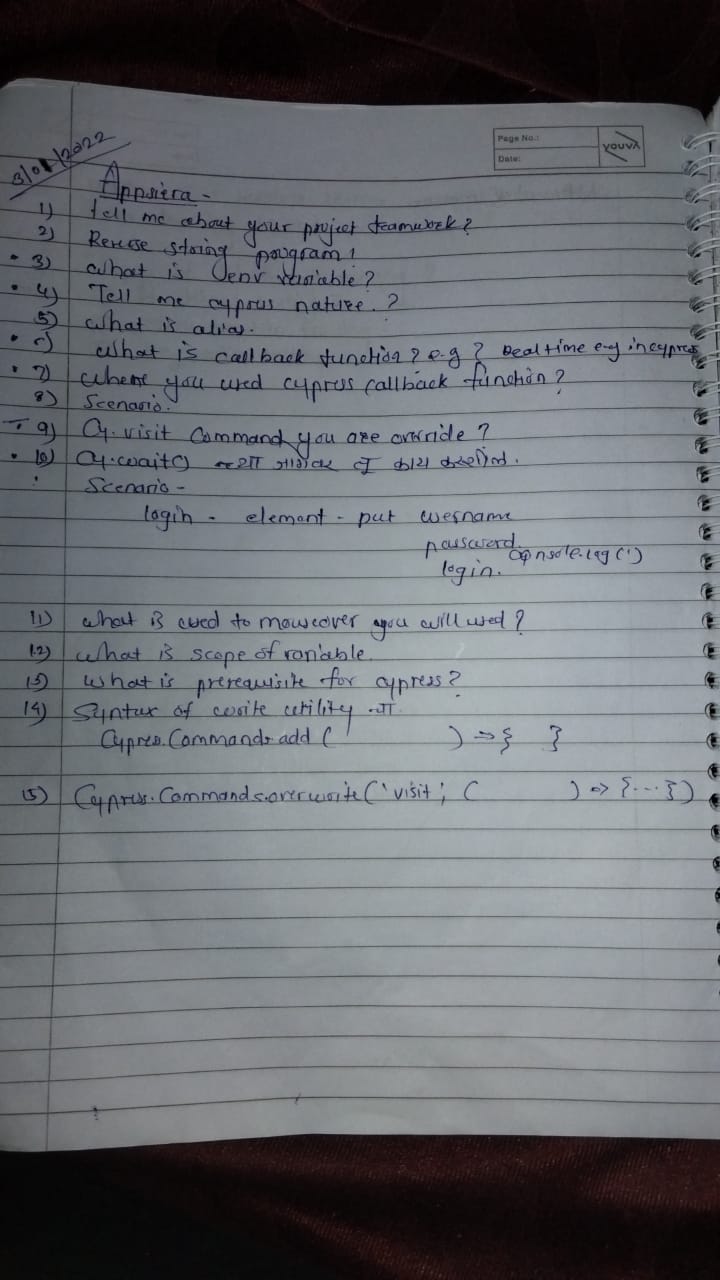 Page No.:
Date:
YOUVA
3/01/2022
Appsiera -
1) Tell me about your project teamwork?
2) Reverse string program!
3) what is env variable?
4) Tell me cyprus nature.?
5) what is alias.
6) what is callback function? e.g? Real time e.g in cypress
7) where you used cypress callback function?
8) Scenario.
9) Cy. visit Command you are override?
10) Cy.wait() च्या जागेवर तू काय करशील.
Scenario -
login - element - put username
password.
console.log(')
login.
11) what is used to mouseover you will used?
12) what is scope of variable.
13) What is prerequisite for cypress?
14) Syntax of write utility
Cypress.Commands.add ( ) => { }
15) Cypress.Commands.overwrite('visit', ( ) => {...})